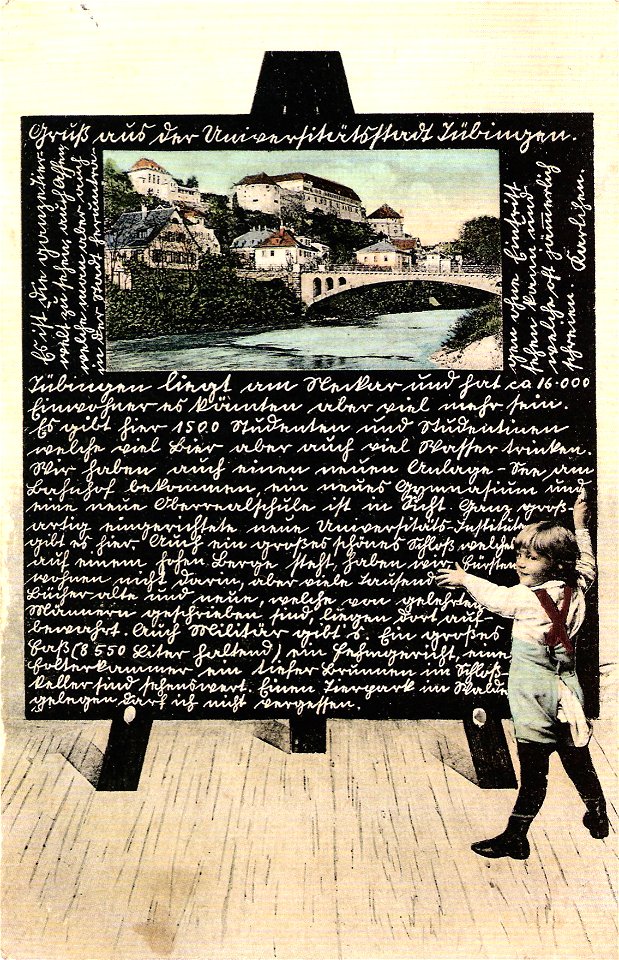 Gruß aus der Universitätsstadt Tübingen.
Tübingen liegt am Neckar und hat ca 16.000
Einwohner es könnten aber viel mehr sein.
Es gibt hier 1500 Studenten und Studentinen
welche viel Bier aber auch viel Wasser trinken.
Wir haben auch einen neuen Anlage-See am
Bahnhof bekommen, ein neues Gymnasium und
eine neue Oberrealschule ist in Sicht. Ganz groß-
artig eingerichtete neue Universitäts-Institute
gibt es hier. Auch ein großes schönes Schloß welches
auf einem hohen Berge steht, haben wir, Fürsten
wohnen nicht darin, aber viele Tausend
Bücher alte und neue, welche von gelehrten
Männern geschrieben sind, liegen dort auf-
bewahrt. Auch Militär gibt's. Ein großes
Faß (8 550 Liter haltend) ein Fehmgericht, eine
Folterkammer ein tiefer Brunnen im Schloß-
keller sind sehenswert. Einen Tierpark im Walde
gelegen darf ich nicht vergessen.
Es ist die ganze Tier-
welt zu sehen, auch Affen,
welche man aber auch
in der Stadt
gen ohne Eintritt
sehen kann und
welche oft jämmerlich
schreien. Karlchen.